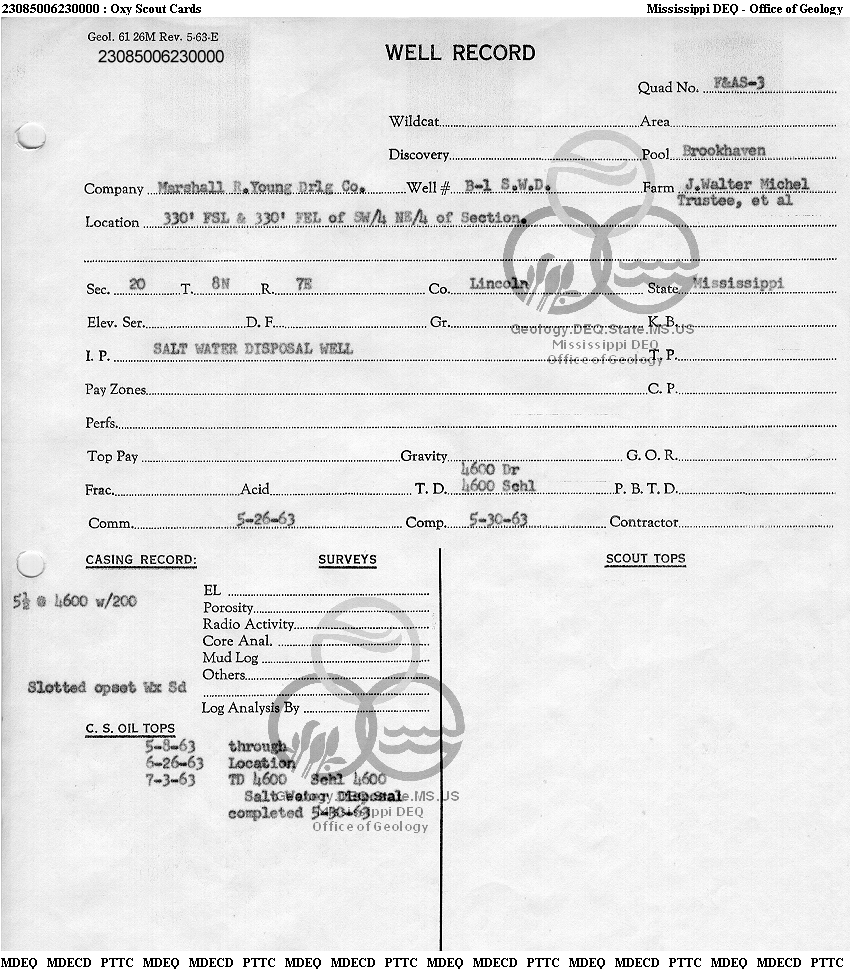 23085006230000 : Oxy Scout Cards Mississippi DEQ - Office of Geology
Geol. 61 26M Rev. 5-63-E
23085006230000
WELL RECORD
Quad No. F&AS-3
Wildcat Area
Discovery Pool Brookhaven
Company Marshall R.Young Drlg Co. Well # B-1 S.W.D. Farm J.Walter Michel
Trustee, et al
Location 330' FSL & 330' FEL of SW/4 NE/4 of Section.
Sec. 20 T. 8N R. 7E Co. Lincoln State Mississippi
Elev. Ser. D. F. Gr. K. B.
Geology.DEQ.State.MS.US
Mississippi DEQ
Office of Geology
I. P. SALT WATER DISPOSAL WELL T. P.
Pay Zones C. P.
Perfs.
Top Pay Gravity G. O. R.
4600 Dr
Frac. Acid T. D. 4600 Schl P. B. T. D.
Comm. 5-26-63 Comp. 5-30-63 Contractor
CASING RECORD: SURVEYS SCOUT TOPS
EL
5½ @ 4600 w/200
Porosity
Radio Activity
Core Anal.
Mud Log
Others
Slotted opset Wx Sd
Log Analysis By
C. S. OIL TOPS
5-8-63 through
6-26-63 Location
7-3-63 TD 4600 Schl 4600
Salt Water Disposal
completed 5-30-63
Geology.DEQ.State.MS.US
Mississippi DEQ
Office of Geology
MDEQ MDECD PTTC MDEQ MDECD PTTC MDEQ MDECD PTTC MDEQ MDECD PTTC MDEQ MDECD PTTC MDEQ MDECD PTTC